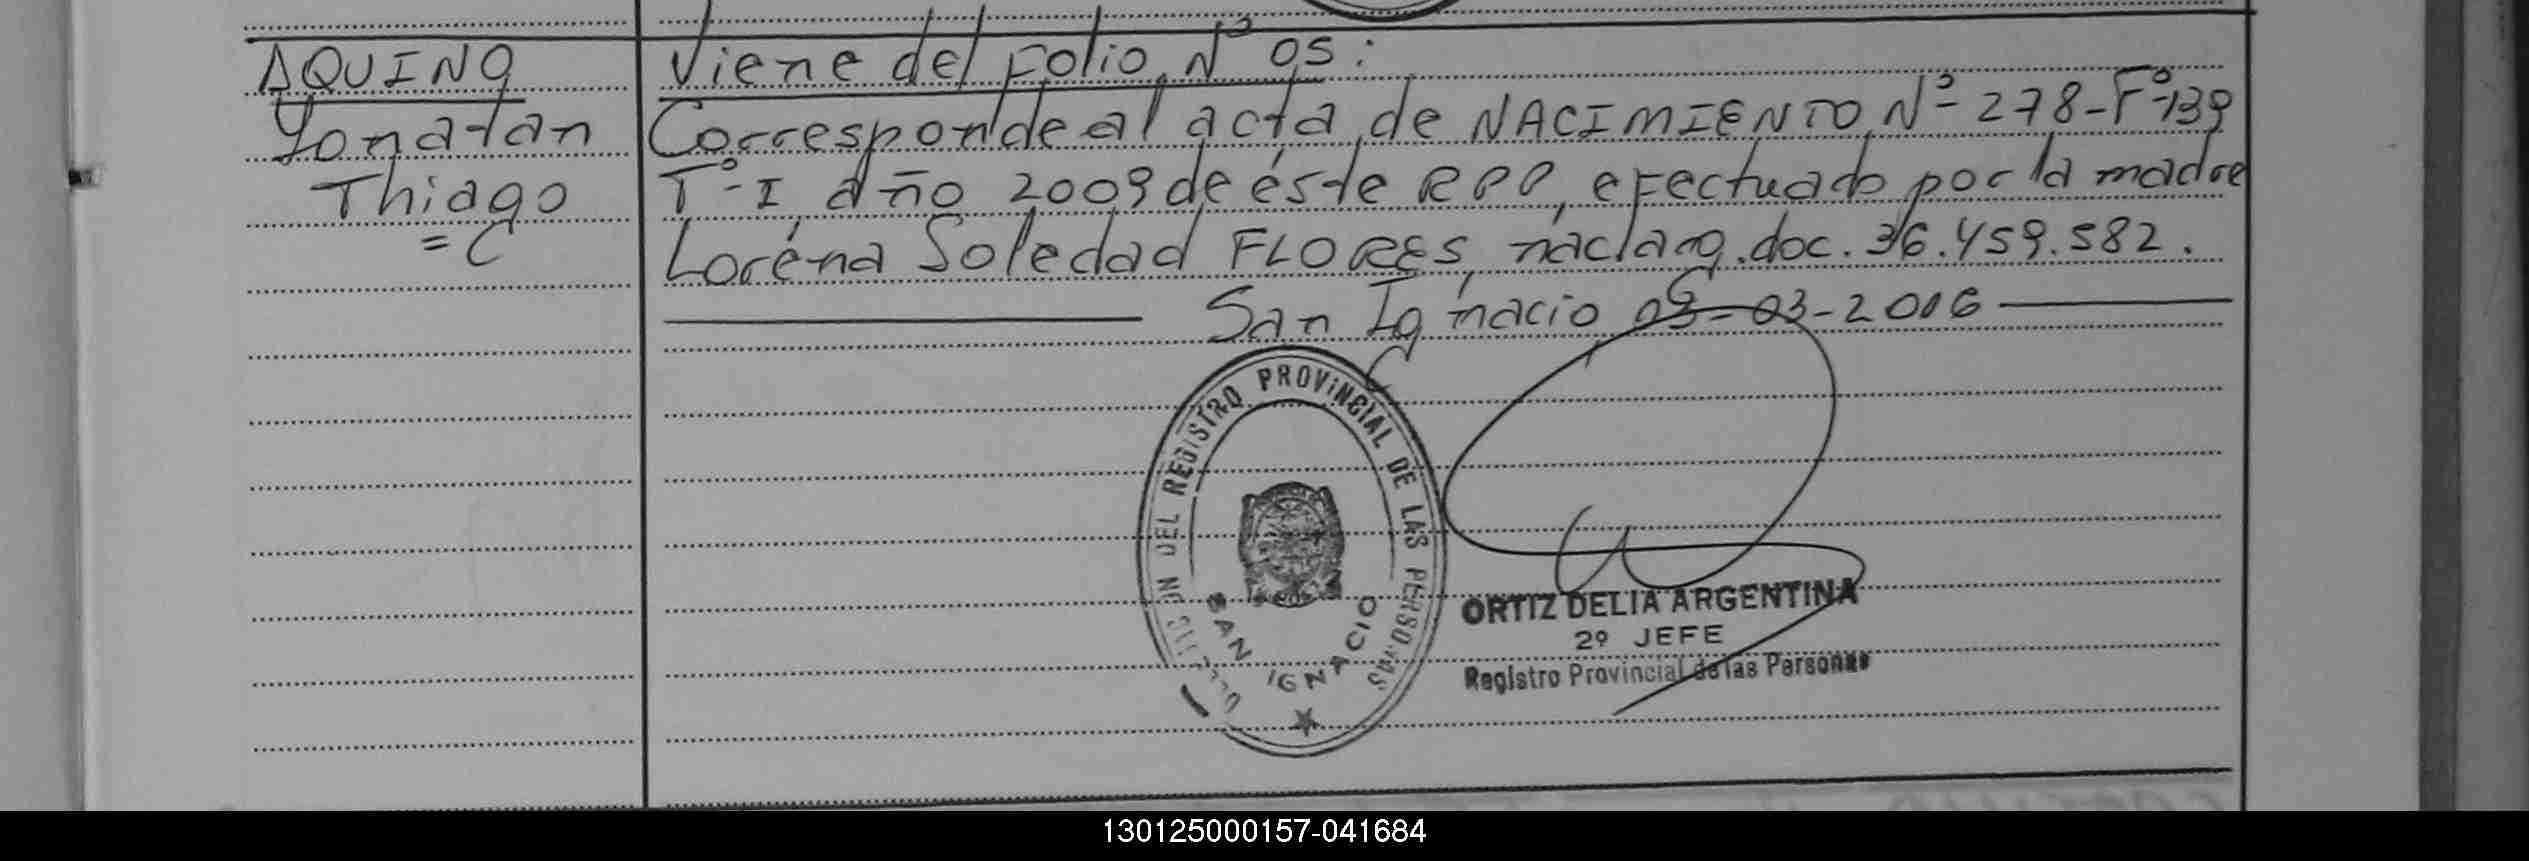 AQUINO
Yonatan
Thiago
= C
Viene del Folio Nº 05:
Corresponde al acta de NACIMIENTO Nº 278-Fº139
Tº-I, año 2009 de éste RPP, efectuado por la madre
Lorena Soledad FLORES, doc. 36.459.582.
San Ignacio 03-2016
DEL REGISTRO PROVINCIAL DE LAS PERSONAS
SAN IGNACIO
ORTIZ DELIA ARGENTINA
2º JEFE
Registro Provincial de las Personas
130125000157-041684